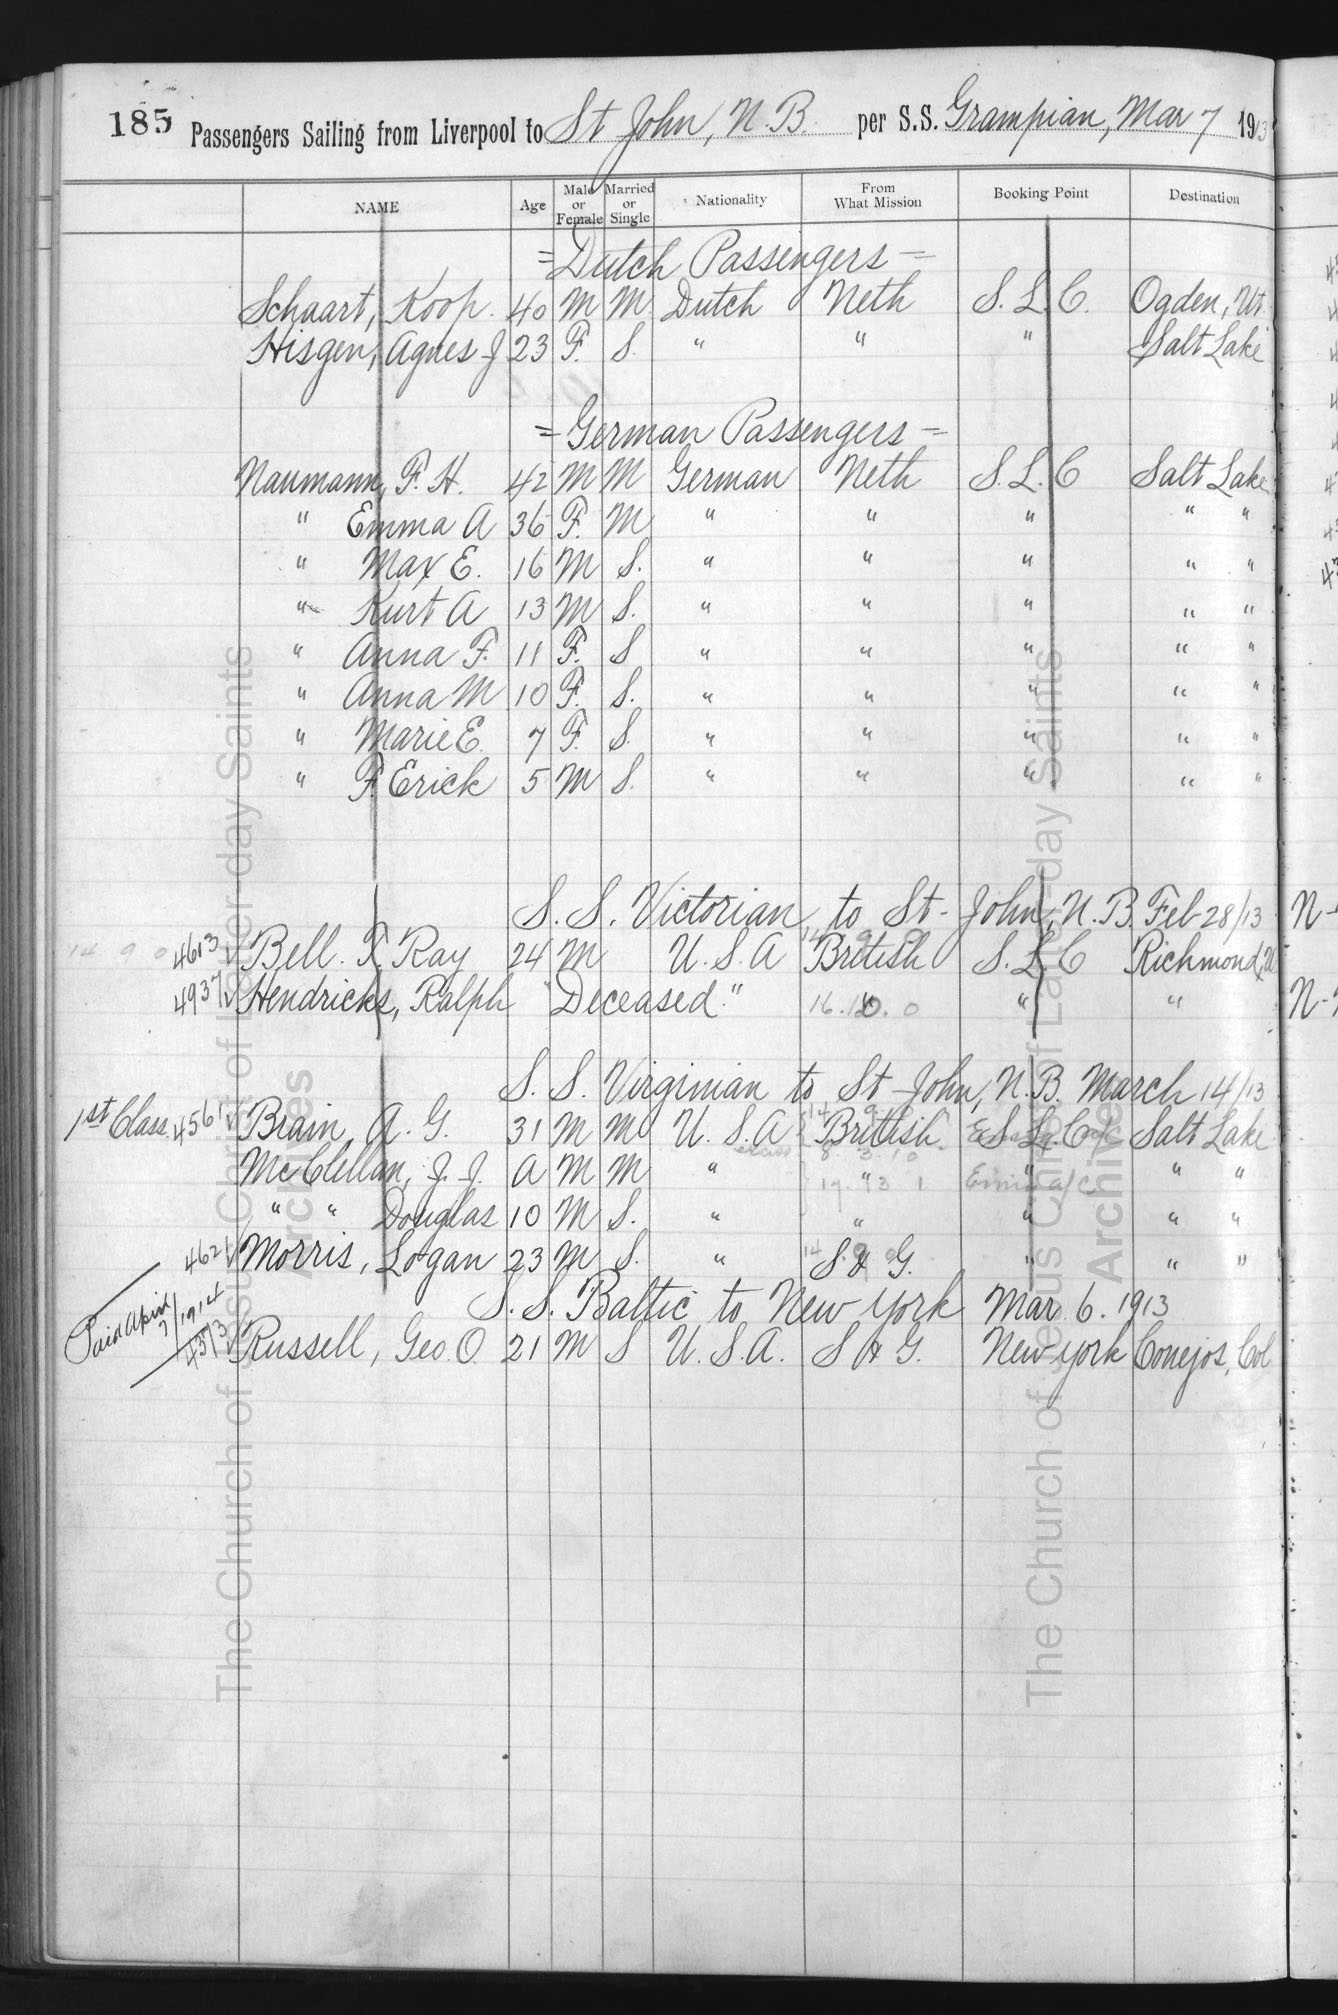 185 Passengers Sailing from Liverpool to St John, N.B. per S.S. Grampian, Mar 7 1913
NAME Age Male or Female Married or Single Nationality From What Mission Booking Point Destination
= Dutch Passengers =
Schaart, Koop. 40 M M. Dutch Neth S.L.C. Ogden, Ut.
Hisgen, Agnes J 23 F. S. " " " Salt Lake
= German Passengers =
Naumann, F. H. 42 M M German Neth S.L.C Salt Lake
" Emma A 36 F. M " " " " "
" Max E. 16 M S. " " " " "
" Kurt A 13 M S. " " " " "
" Anna F. 11 F. S " " " " "
" Anna M 10 F. S. " " " " "
" Marie E. 7 F. S. " " " " "
" F. Erick 5 M S. " " " " "
S. S. Victorian to St. John, N.B. Feb 28/13 N-
14 9 0 4613 √ Bell. T. Ray 24 M U.S.A British S.L.C Richmond, U
4937 √ Hendricks, Ralph "Deceased." " 16.10.0 " "
S. S. Virginian to St John, N.B. March 14/13
1st Class 4561 √ Brain, A. G. 31 M M U.S.A British S.L.C Salt Lake
McClellan, J. J. A M M " " " " "
" " Douglas 10 M S. " " " " "
4621 √ Morris, Logan 23 M S. " S. & G. " " "
S. S. Baltic to New York Mar. 6. 1913
Paid April 7/1914 4373 √ Russell, Geo. O. 21 M S U.S.A. S & G. New York Conejos, Col
The Church of Jesus Christ of Latter-day Saints
Archives
The Church of Jesus Christ of Latter-day Saints
Archives